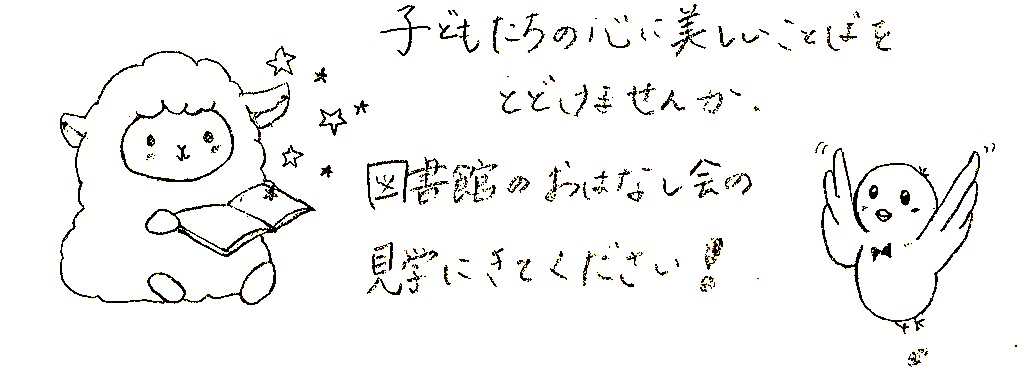 子どもたちの心に美しいことばを
とどけませんか.
図書館のおはなし会の
見学にきてください!